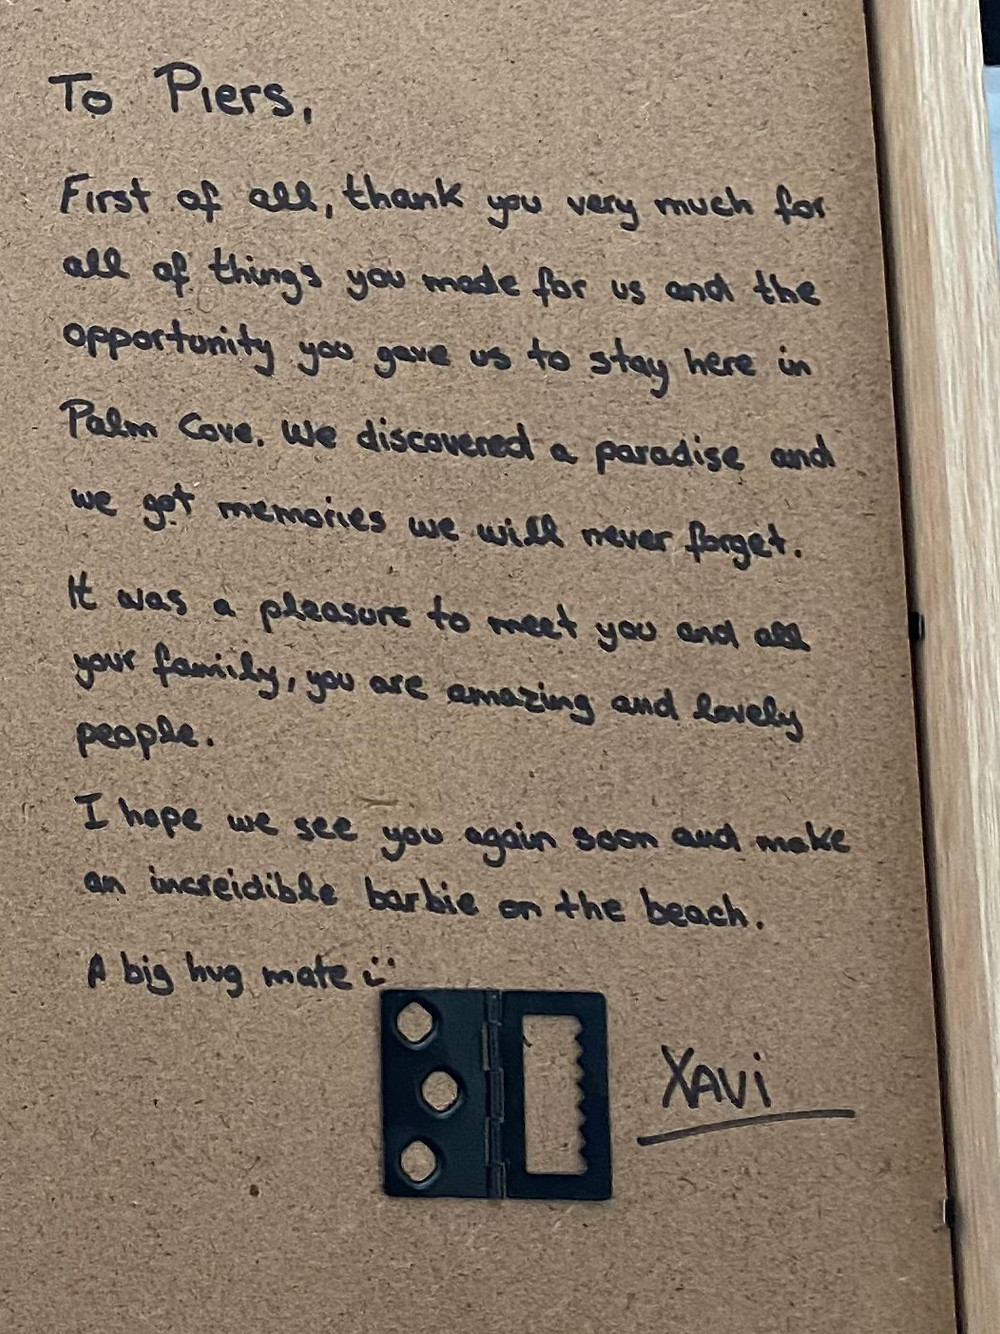 To Piers,
First of all, thank you very much for
all of things you made for us and the
opportunity you gave us to stay here in
Palm Cove. We discovered a paradise and
we got memories we will never forget.
It was a pleasure to meet you and all
your family, you are amazing and lovely
people.
I hope we see you again soon and make
an increidible barbie on the beach.
A big hug mate :)
XAVi